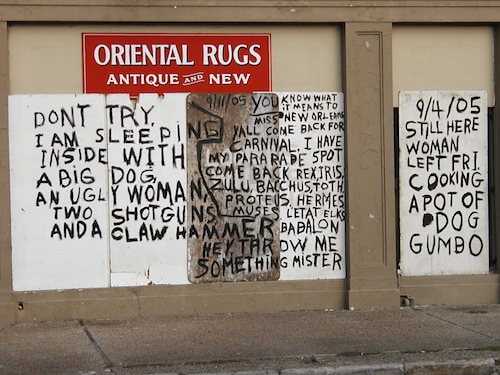 ORIENTAL RUGS
ANTIQUE AND NEW
DONT TRY.
I AM SLEEPING
INSIDE WITH
A BIG DOG,
AN UGLY WOMAN,
TWO SHOTGUNS
AND A CLAW HAMMER
9/11/05 YOU KNOW WHAT
IT MEANS TO
MISS NEW ORLEANS
YALL COME BACK FOR
CARNIVAL. I HAVE
MY PARARADE SPOT
COME BACK REX, IRIS,
ZULU, BACCHUS, TOTH,
PROTEUS, HERMES
MUSES, LETAT ELKS
BABALON
HEY THROW ME
SOMETHING MISTER
9/4/05
STILL HERE
WOMAN
LEFT FRI.
COOKING
A POT OF
DOG
GUMBO